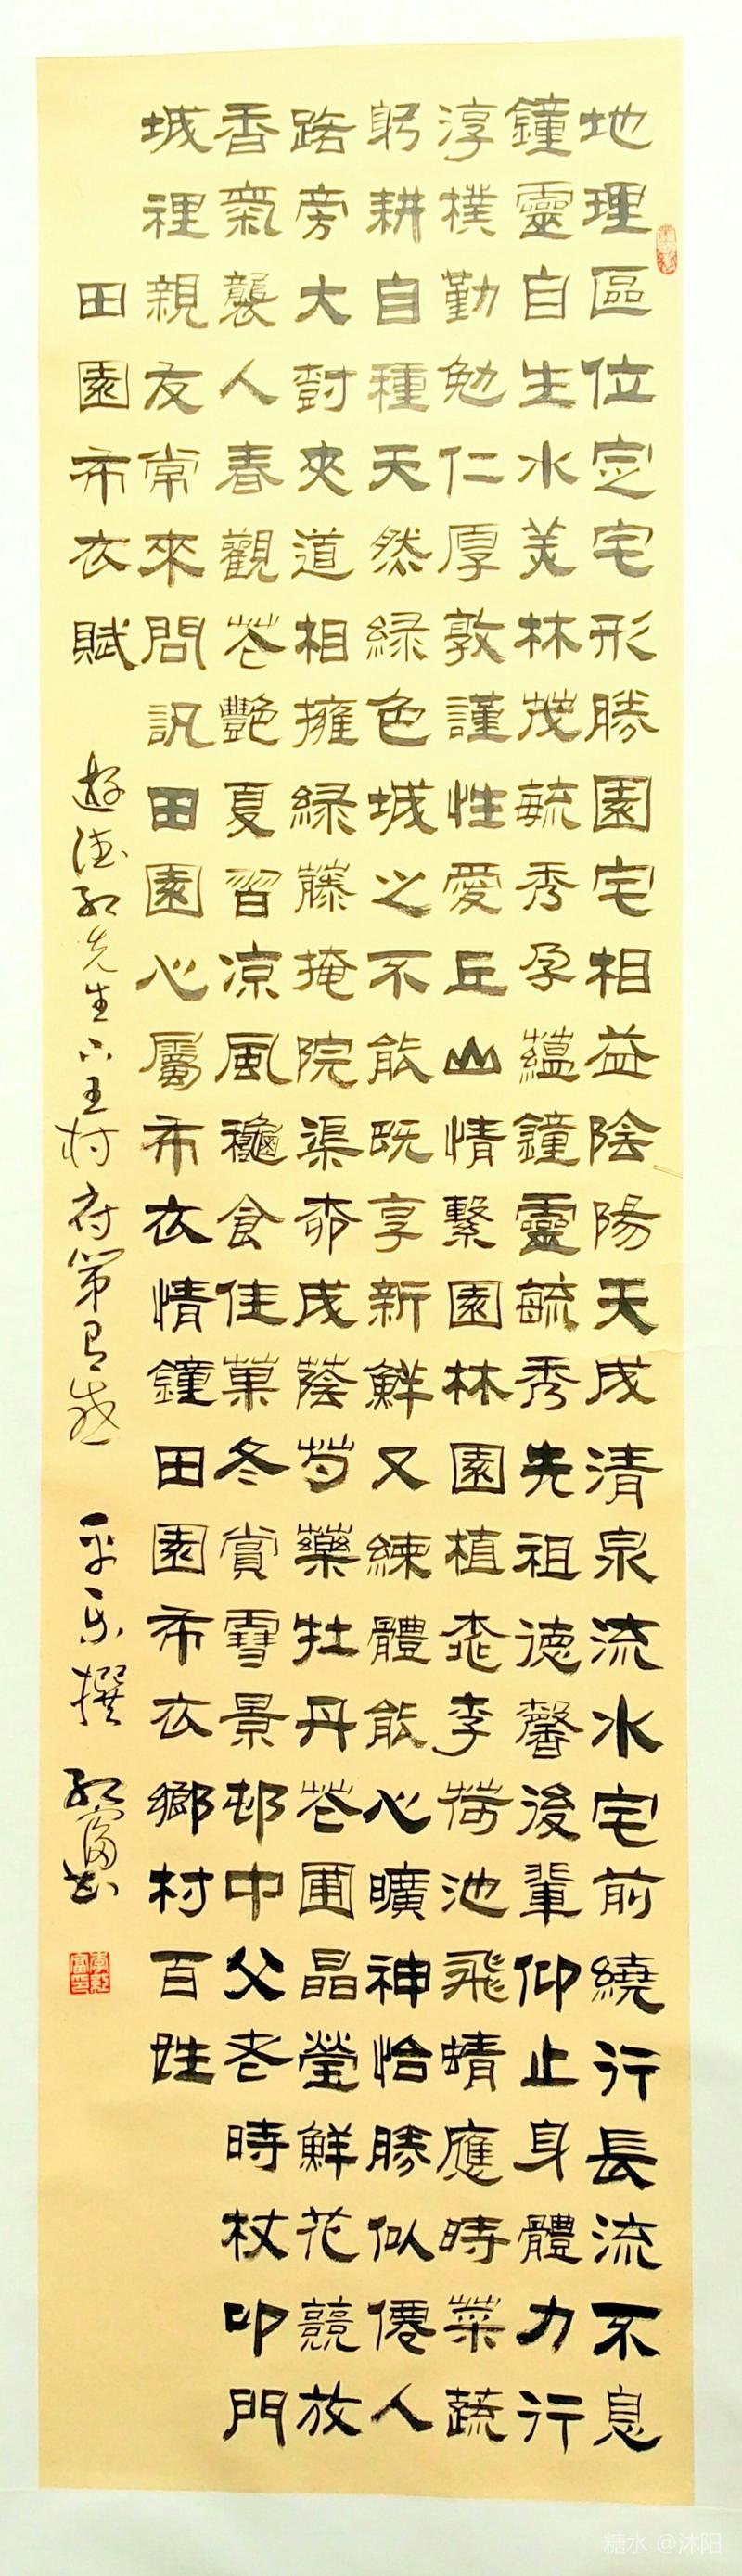 地理區位定宅形勝園宅相益陰陽天成清泉流水宅前繞行長流不息
鐘靈自生水美林茂毓秀孕蘊鐘靈毓秀先祖德馨後輩仰止身體力行
淳樸勤勉仁厚敦謹性愛丘山情繫園林園植桃李荷池飛蜻應時菜蔬
躬耕自種天然綠色城之不能既享新鮮又練體能心曠神怡勝似僊人
路旁大樹夾道相擁綠藤掩院渠亦成蔭芍藥牡丹花圃晶瑩鮮花競放
香氣襲人春觀花艷夏習涼風秋食佳菓冬賞雪景邨中父老時杖叩門
城裡親友常來問訊田園心屬布衣情鐘田園布衣鄉村百姓
田園布衣賦
遊德紅先生六王村府第有感
平樂撰
紅富書
李紅富印
糖水 @沐阳